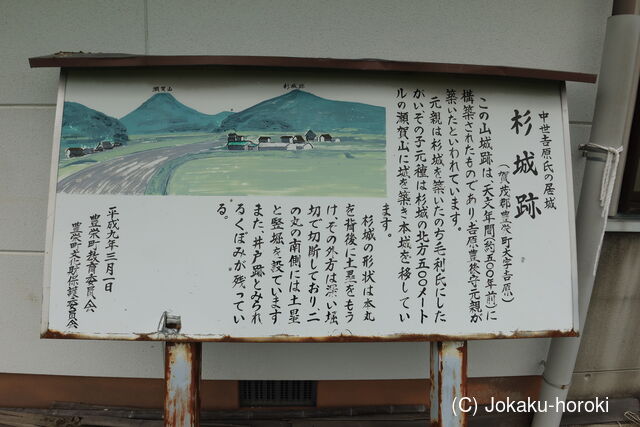 中世吉原氏の居城
杉城跡
（賀茂郡豊栄町大字吉原）
この山城跡は、天文年間（約五〇〇年前）に
構築されたものであり、吉原豊後守元親が
築いたといわれています。
元親は杉城を築いたのち毛利氏にした
がい、その子元種は杉城の北方五〇〇メート
ルの瀬賀山に城を築き本城を移してい
ます。
杉城の形状は本丸
を背後に土塁をもう
け、その外方は深い堀
切で切断しており、二
の丸の南側には土塁
と竪堀を設ています
また、井戸跡とみられ
るくぼみが残ってい
る。
平成九年三月一日
豊栄町教育委員会
豊栄町文化財保護委員会
瀬賀山
杉城跡
(C) Jokaku-horoki